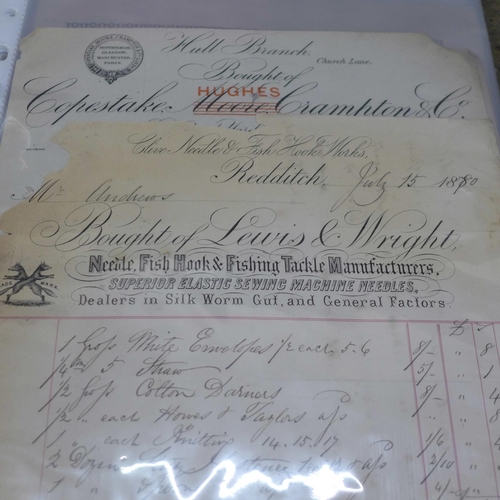 Hull Branch,
Church Lane.
Bought of
HUGHES
Copestake, Moore, Crampton & Co.
Clive Needle & Fish Hook Works,
Redditch, July 15 1880
Mr Andrews
Bought of Lewis & Wright,
Needle, Fish Hook & Fishing Tackle Manufacturers,
SUPERIOR ELASTIC SEWING MACHINE NEEDLES,
Dealers in Silk Worm Gut, and General Factors
MARK
£ s
1 Gross White Envelopes 1/2 each 5.6 8/- " 8
1/4 5 Straw 5/- " 1
1/2 Gross Cotton Darners 8/- " 4
1/2 " each 8
1 each Knitting 14.15.17 1/6 " 4
2 Dozen 2/10 "
1 "